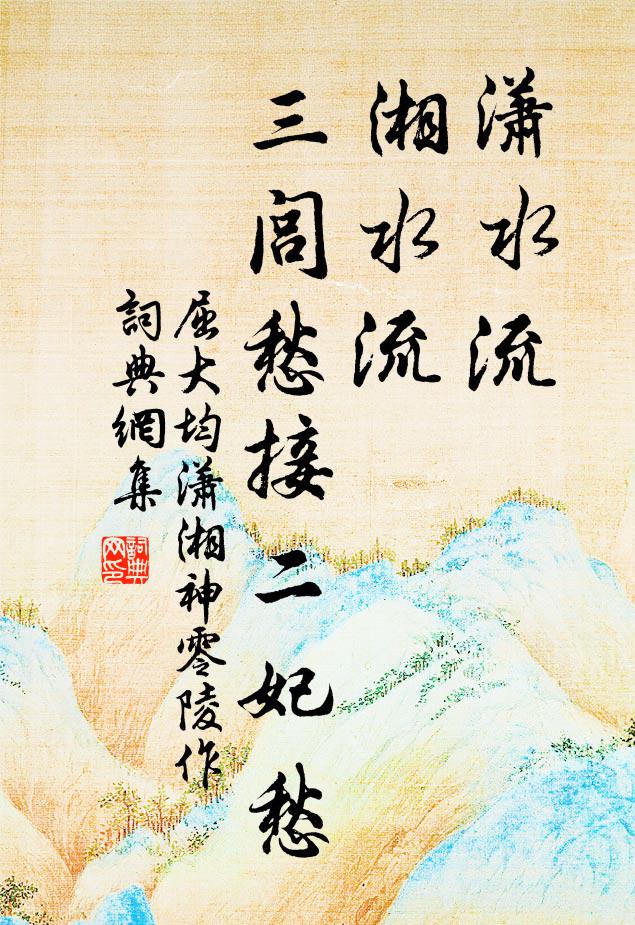 瀟水流
湘水流
三閭愁接二妃愁
屈大均瀟湘神零陵作
詞典網集
詞典
网印